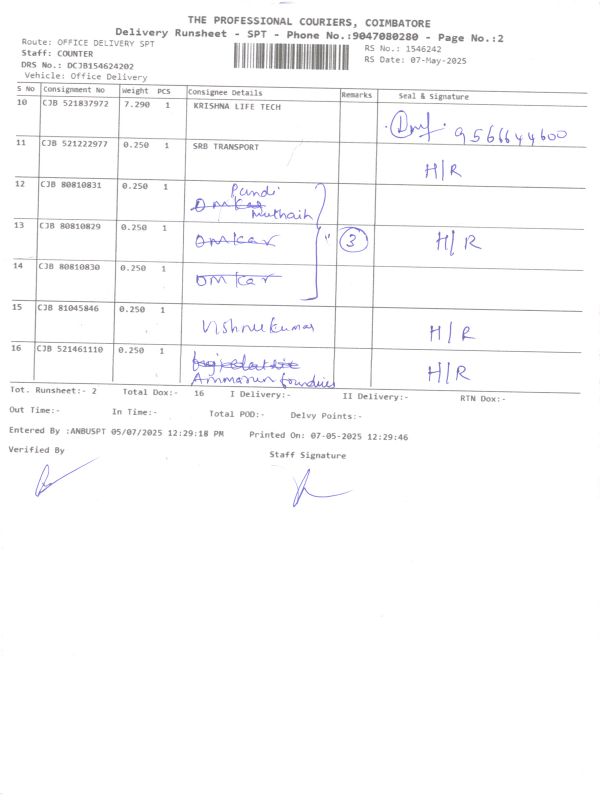 THE PROFESSIONAL COURIERS, COIMBATORE
Delivery Runsheet - SPT - Phone No.:9047080280 - Page No.:2
Route: OFFICE DELIVERY SPT
Staff: COUNTER
DRS No.: DCJB154624202
Vehicle: Office Delivery
RS No.: 1546242
RS Date: 07-May-2025
S No Consignment No Weight PCS Consignee Details Remarks Seal & Signature
10 CJB 521837972 7.290 1 KRISHNA LIFE TECH 9566644600
11 CJB 521222977 0.250 1 SRB TRANSPORT H/R
12 CJB 80810831 0.250 1 Pandi
Omkar
Muthaih
13 CJB 80810829 0.250 1 Omkar " 3 H/R
14 CJB 80810830 0.250 1 Omkar
15 CJB 81045846 0.250 1 Vishnu Kumar H/R
16 CJB 521461110 0.250 1 H/R
Ammarun foundries
Tot. Runsheet:- 2 Total Dox:- 16 I Delivery:- II Delivery:- RTN Dox:-
Out Time:- In Time:- Total POD:- Delvy Points:-
Entered By :ANBUSPT 05/07/2025 12:29:18 PM Printed On: 07-05-2025 12:29:46
Verified By Staff Signature